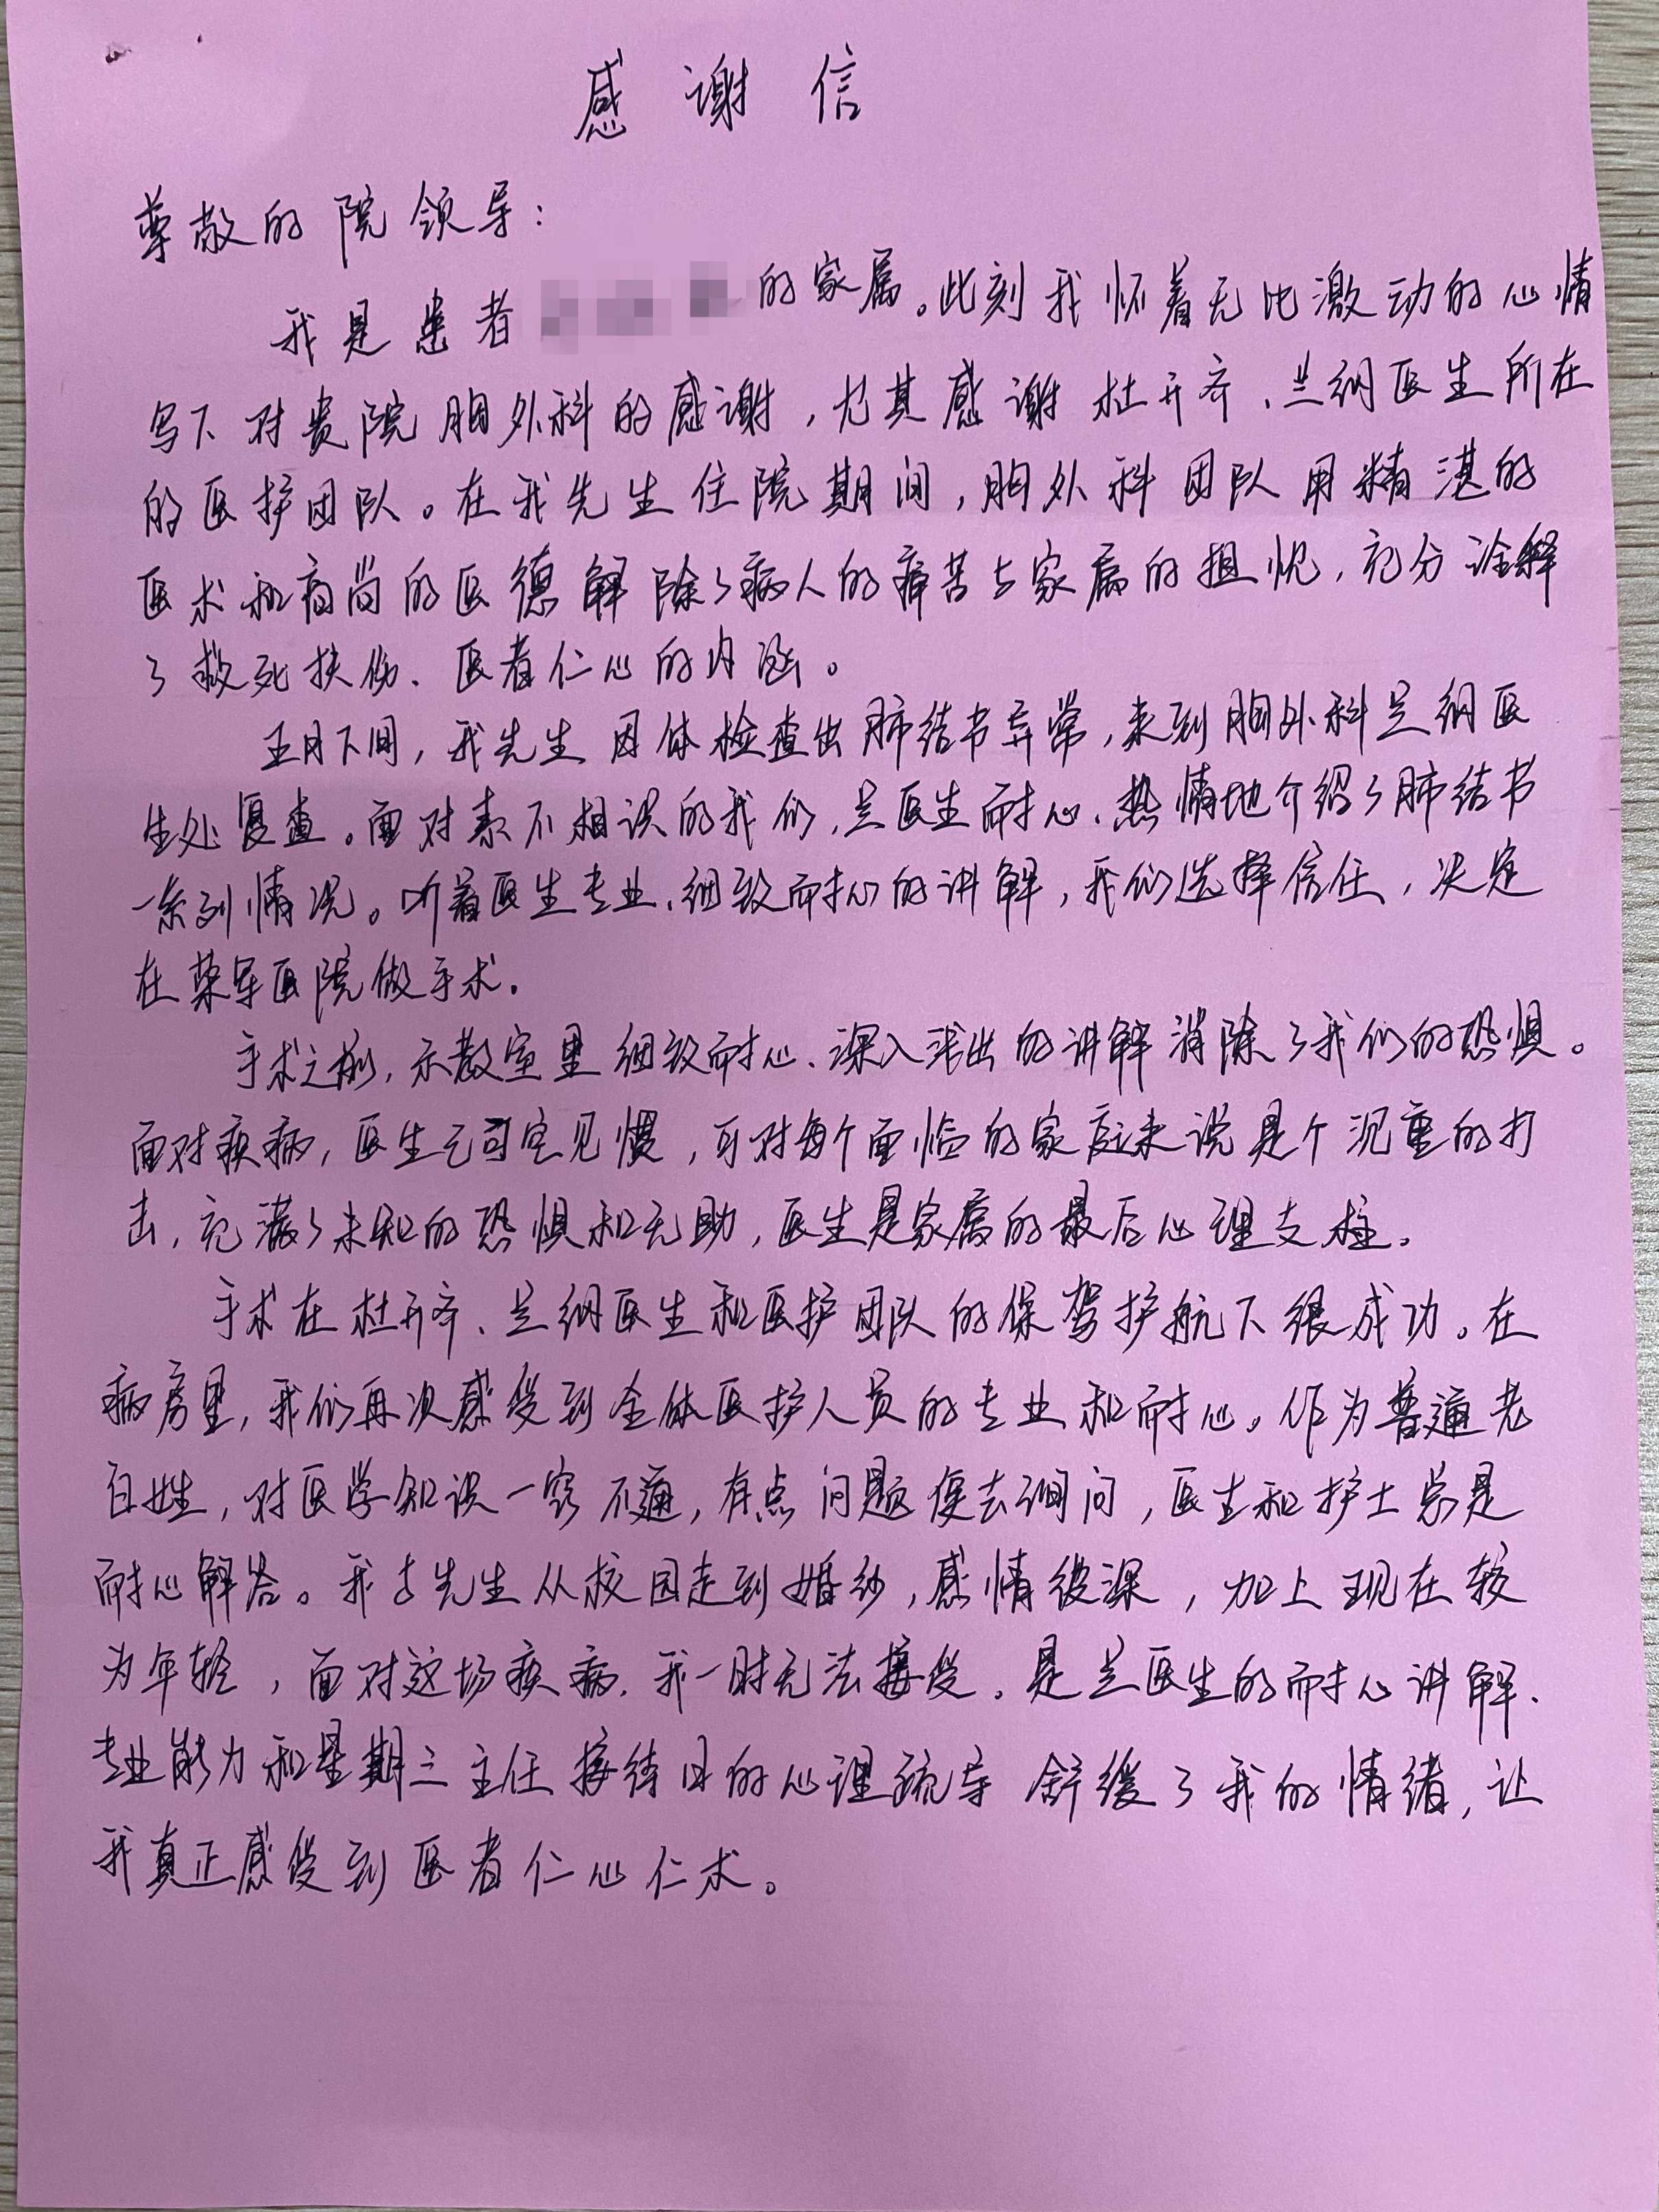 感谢信
尊敬的院领导：
我是患者 的家属。此刻我怀着无比激动的心情
写下对贵院胸外科的感谢，尤其感谢杜开齐、兰纲医生所在
的医护团队。在我先生住院期间，胸外科团队用精湛的
医术和高尚的医德解除了病人的痛苦与家属的担忧，充分诠释
了救死扶伤、医者仁心的内涵。
五月下旬，我先生因体检查出肺结节异常，来到胸外科兰纲医
生处复查。面对素不相识的我们，兰医生耐心、热情地介绍了肺结节
一系列情况。听着医生专业、细致耐心的讲解，我们选择信任，决定
在荣军医院做手术。
手术之前，示教室里细致耐心、深入浅出的讲解消除了我们的恐惧。
面对疾病，医生已司空见惯，可对每个面临的家庭来说是个沉重的打
击，充满了未知的恐惧和无助，医生是家属的最后心理支柱。
手术在杜开齐、兰纲医生和医护团队的保驾护航下很成功。在
病房里，我们再次感受到全体医护人员的专业和耐心。作为普通老
百姓，对医学知识一窍不通，有点问题便去询问，医生和护士总是
耐心解答。我与先生从校园走到婚纱，感情很深，加上现在较
为年轻，面对这场疾病，我一时无法接受。是兰医生的耐心讲解、
专业能力和星期三主任接待日的心理疏导舒缓了我的情绪，让
我真正感受到医者仁心仁术。